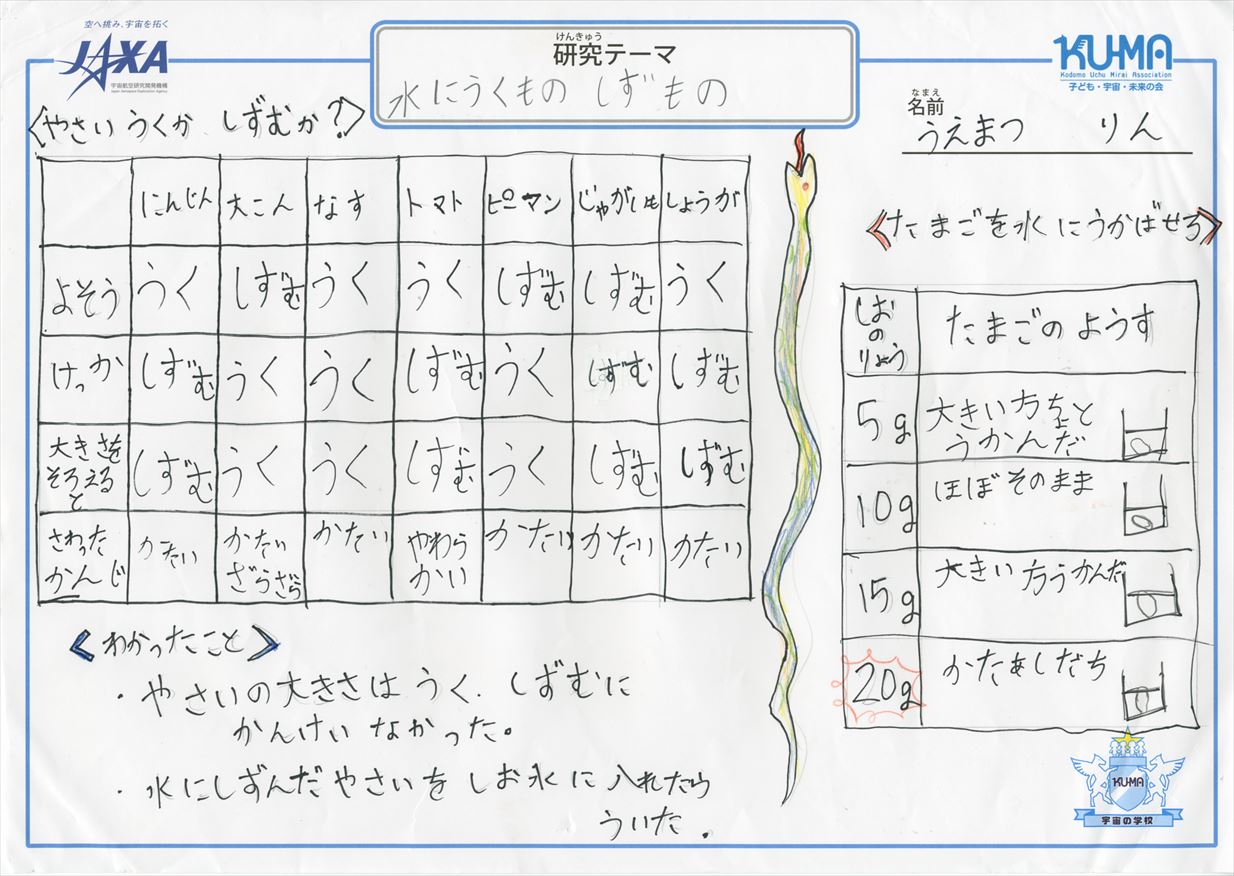 空へ挑み、宇宙を拓く
JAXA
宇宙航空研究開発機構
Japan Aerospace Exploration Agency
けんきゅう
研究テーマ
水にうくもの しずもの
KU-MA
Kodomo Uchu Mirai Association
子ども・宇宙・未来の会
なまえ
名前
うえまつ りん
〈やさい うくか しずむか?〉
にんじん 大こん なす トマト ピーマン じゃがいも しょうが
よそう うく しずむ うく うく しずむ しずむ うく
けっか しずむ うく うく しずむ うく しずむ しずむ
大きさをそろえると しずむ うく うく しずむ うく しずむ しずむ
さわったかんじ かたい かたいざらざら かたい やわらかい かたい かたい かたい
《わかったこと》
・やさいの大きさは うく. しずむに
かんけい なかった。
・水にしずんだやさいを しお水に 入れたら
ういた.
《たまごを水にうかばせろ》
しおのりょう たまごのようす
5g 大きい方ちょっと
うかんだ
10g ほぼそのまま
15g 大きい方うかんだ
20g かたあしだち
KU-MA
宇宙の学校